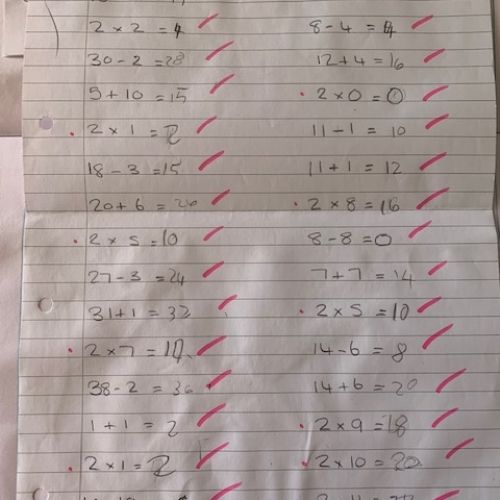 2 × 2 = 4
30 - 2 = 28
5 + 10 = 15
2 × 1 = 2
18 - 3 = 15
20 + 6 = 26
2 × 5 = 10
27 - 3 = 24
31 + 1 = 32
2 × 7 =
38 - 2 = 36
1 + 1 = 2
2 × 1 = 2
8 - 4 = 4
12 + 4 = 16
2 × 0 = 0
11 - 1 = 10
11 + 1 = 12
2 × 8 = 16
8 - 8 = 0
7 + 7 = 14
2 × 5 = 10
14 - 6 = 8
14 + 6 = 20
2 × 9 = 18
2 × 10 = 20